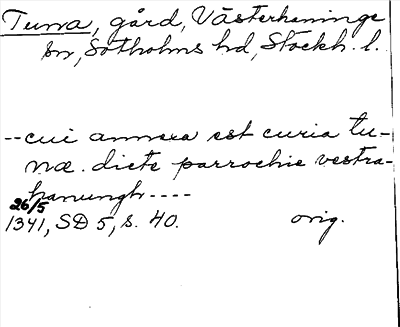 Tuna, gård, Västerhaninge
sn, Sotholms hd, Stockh. l.
-- cui annexa est curia tu-
næ. dicte parrochie vestra-
hanungh ----
26/5
1341, SD 5, s. 40. orig.